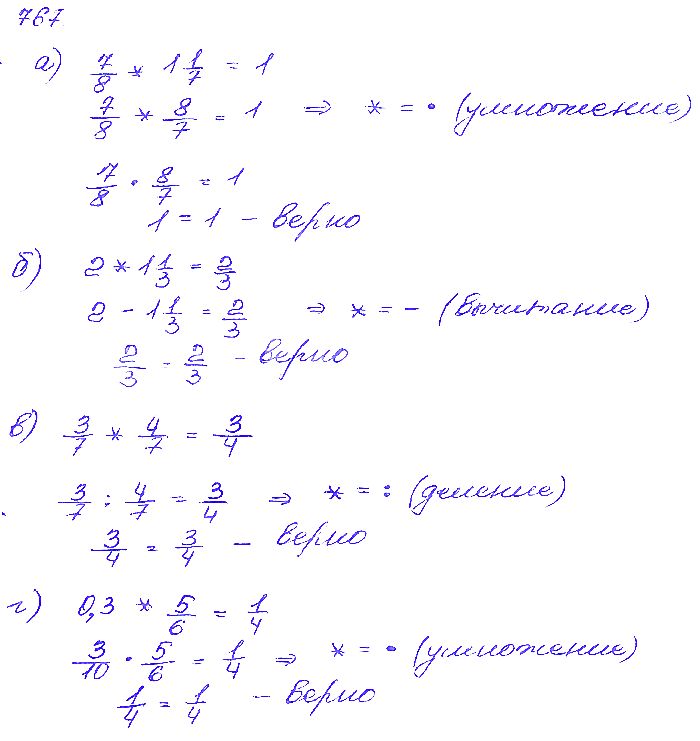 767
а) 7/8 * 1 1/7 = 1
7/8 * 8/7 = 1 ⇒ * = • (умножение)
7/8 · 8/7 = 1
1 = 1 – верно
б) 2 * 1 1/3 = 2/3
2 - 1 1/3 = 2/3 ⇒ * = - (вычитание)
2/3 - 2/3 – верно
в) 3/7 * 4/7 = 3/4
3/7 : 4/7 = 3/4 ⇒ * = : (деление)
3/4 = 3/4 – верно
г) 0,3 * 5/6 = 1/4
3/10 · 5/6 = 1/4 ⇒ * = • (умножение)
1/4 = 1/4 – верно